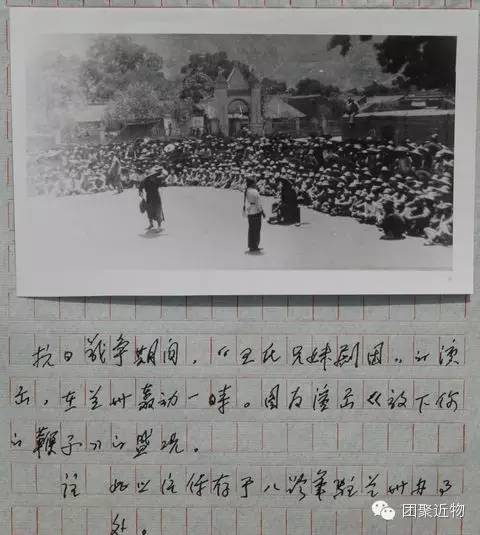 抗日战争期间，“王氏兄妹剧团”的演
出，在兰州轰动一时。图为演出《放下你
的鞭子》的盛况。
注 此 保存于八路军驻兰州办事
处。
团聚近物